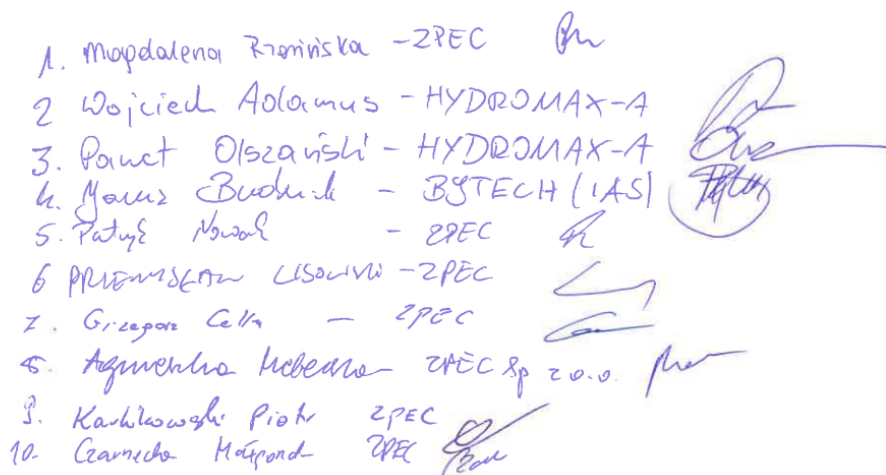 1. Magdalena - ZPEC
2 Wojciech Adamus - HYDROMAX-A
3. Paweł Olszański - HYDROMAX-A
4. Janusz Budnik - BYTECH (IAS)
5. Patryk Nowak - ZPEC
6 PRZEMYSŁAW LISOWSKI - ZPEC
7. Grzegorz - ZPEC
8. Agnieszka ZPEC Sp z o.o.
9. Piotr ZPEC
10. Czarnecka Małgorzata ZPEC